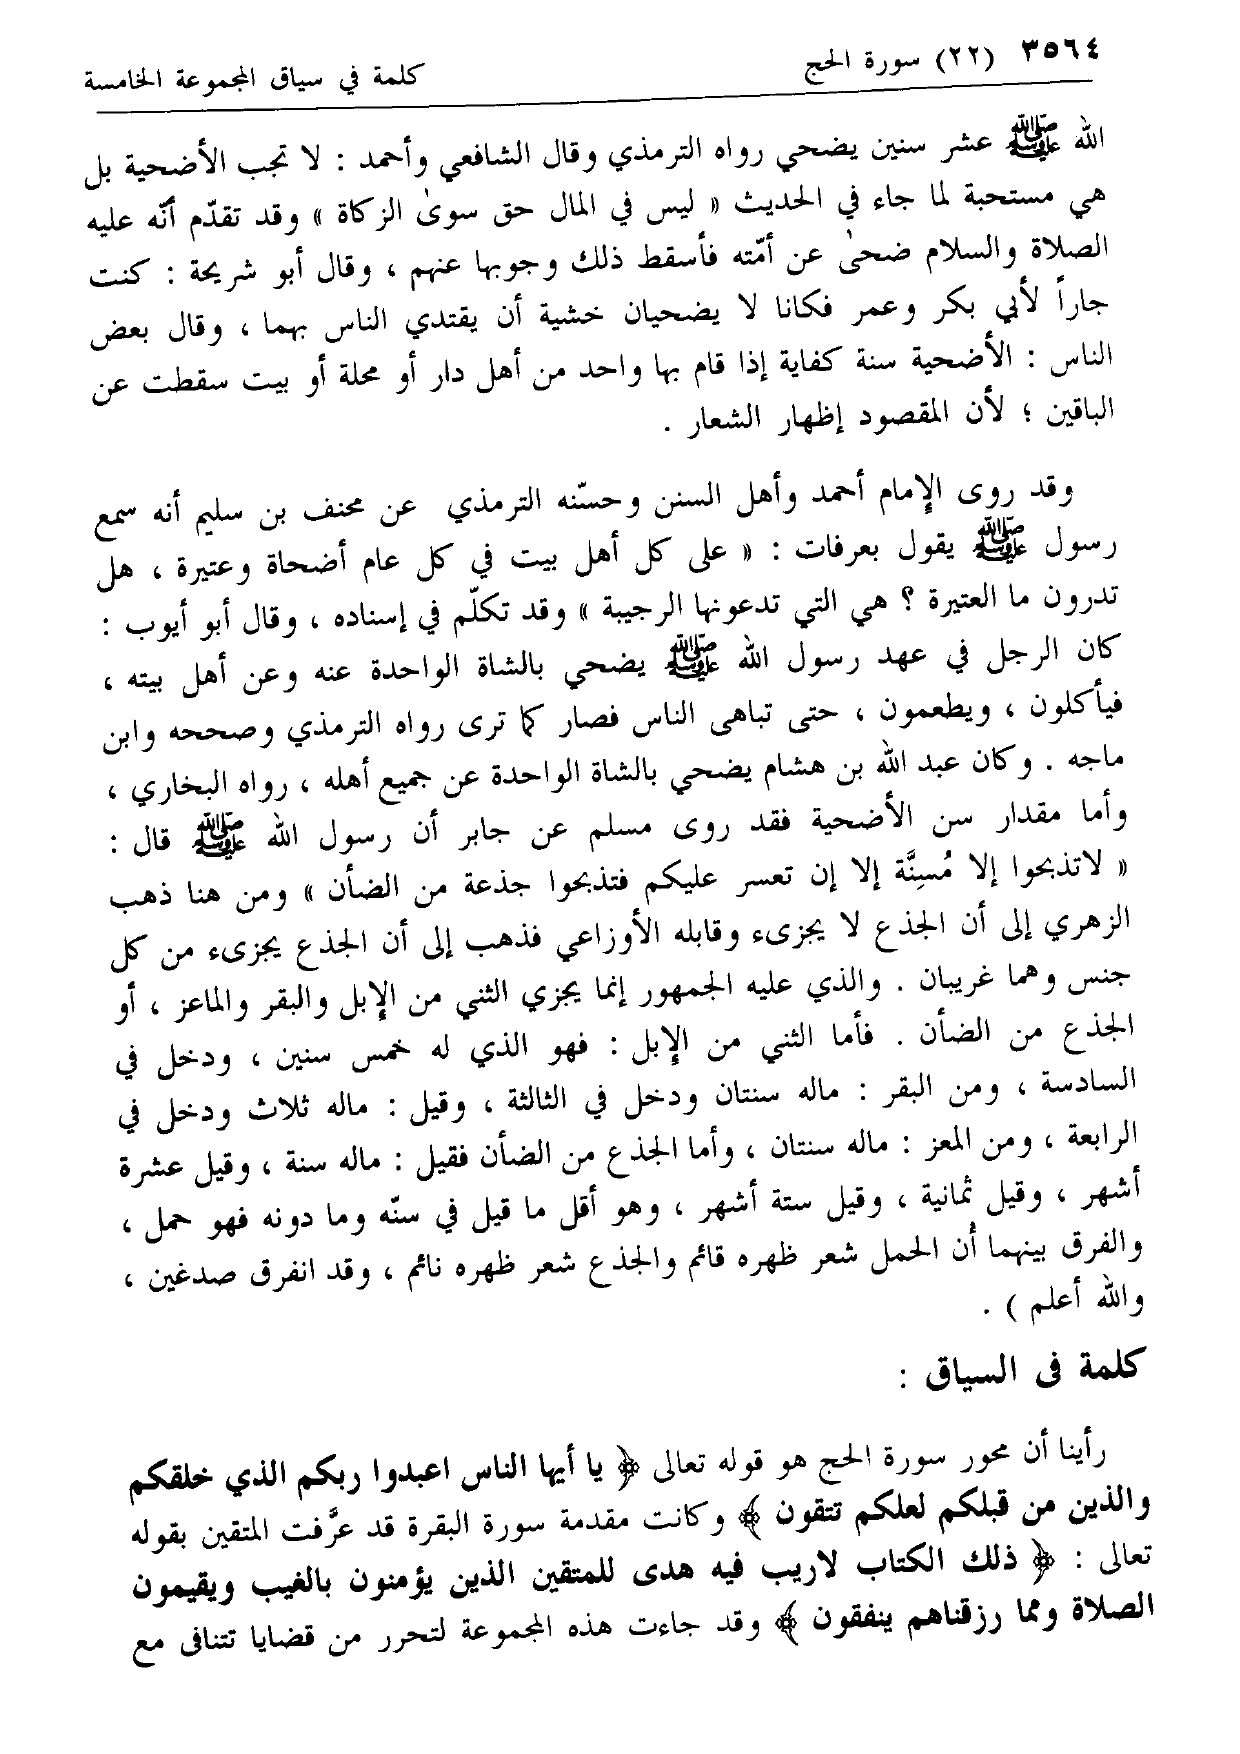 ٣٥٦٤ (٢٢) سورة الحج كلمة في سياق المجموعة الخامسة
الله ﷺ عشر سنين يضحي رواه الترمذي وقال الشافعي وأحمد : لا تجب الأضحية بل
هي مستحبة لما جاء في الحديث « ليس في المال حق سوىٰ الزكاة » وقد تقدّم أنّه عليه
الصلاة والسلام ضحىٰ عن أمّته فأسقط ذلك وجوبها عنهم ، وقال أبو شريحة : كنت
جاراً لأبي بكر وعمر فكانا لا يضحيان خشية أن يقتدي الناس بهما ، وقال بعض
الناس : الأضحية سنة كفاية إذا قام بها واحد من أهل دار أو محلة أو بيت سقطت عن
الباقين ؛ لأن المقصود إظهار الشعار .
وقد روى الإمام أحمد وأهل السنن وحسّنه الترمذي عن مخنف بن سليم أنه سمع
رسول ﷺ يقول بعرفات : « على كل أهل بيت في كل عام أضحاة وعتيرة ، هل
تدرون ما العتيرة ؟ هي التي تدعونها الرجيبة » وقد تكلّم في إسناده ، وقال أبو أيوب :
كان الرجل في عهد رسول الله ﷺ يضحي بالشاة الواحدة عنه وعن أهل بيته ،
فيأكلون ، ويطعمون ، حتى تباهى الناس فصار كما ترى رواه الترمذي وصححه وابن
ماجه . وكان عبد الله بن هشام يضحي بالشاة الواحدة عن جميع أهله ، رواه البخاري ،
وأما مقدار سن الأضحية فقد روى مسلم عن جابر أن رسول الله ﷺ قال :
« لاتذبحوا إلا مُسِنَّة إلا إن تعسر عليكم فتذبحوا جذعة من الضأن » ومن هنا ذهب
الزهري إلى أن الجذع لا يجزىء وقابله الأوزاعي فذهب إلى أن الجذع يجزىء من كل
جنس وهما غريبان . والذي عليه الجمهور إنما يجزي الثني من الإبل والبقر والماعز ، أو
الجذع من الضأن . فأما الثني من الإبل : فهو الذي له خمس سنين ، ودخل في
السادسة ، ومن البقر : ماله سنتان ودخل في الثالثة ، وقيل : ماله ثلاث ودخل في
الرابعة ، ومن المعز : ماله سنتان ، وأما الجذع من الضأن فقيل : ماله سنة ، وقيل عشرة
أشهر ، وقيل ثمانية ، وقيل ستة أشهر ، وهو أقل ما قيل في سنّه وما دونه فهو حمل ،
والفرق بينهما أن الحمل شعر ظهره قائم والجذع شعر ظهره نائم ، وقد انفرق صدغين ،
والله أعلم ) .
كلمة في السياق :
رأينا أن محور سورة الحج هو قوله تعالى ﴿ يا أيها الناس اعبدوا ربكم الذي خلقكم
والذين من قبلكم لعلكم تتقون ﴾ وكانت مقدمة سورة البقرة قد عرَّفت المتقين بقوله
تعالى : ﴿ ذلك الكتاب لاريب فيه هدى للمتقين الذين يؤمنون بالغيب ويقيمون
الصلاة ومما رزقناهم ينفقون ﴾ وقد جاءت هذه المجموعة لتحرر من قضايا تتنافى مع